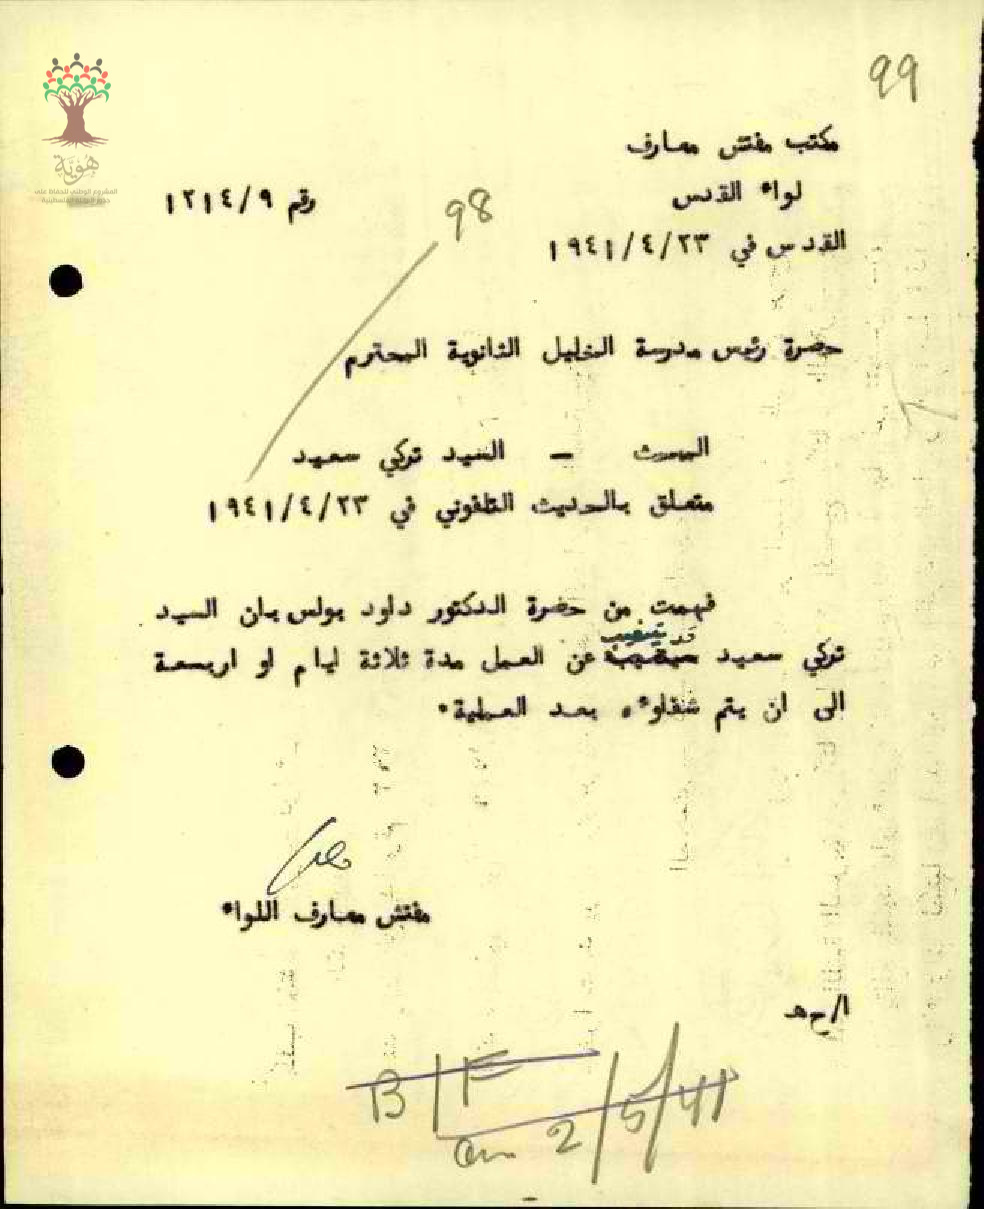 99
هوية
المشروع الوطني للحفاظ على
جذور العائلة الفلسطينية
مكتب مفتش معارف
لواء القدس
رقم ١٢١٤/٩
98
القدس في ١٩٤١/٤/٢٣
حضرة رئيس مدرسة الخليل الثانوية المحترم
البحث – السيد تركي سعيد
متعلق بالحديث التلفوني في ١٩٤١/٤/٢٣
فهمت من حضرة الدكتور داود بولس بان السيد
قد يتغيب
تركي سعيد سيتغيب عن العمل مدة ثلاثة ايام او اربعة
الى ان يتم شفاوءه بعد العملية٠
مفتش معارف اللواء
ا/ح ه
B/F
on 2/5/41